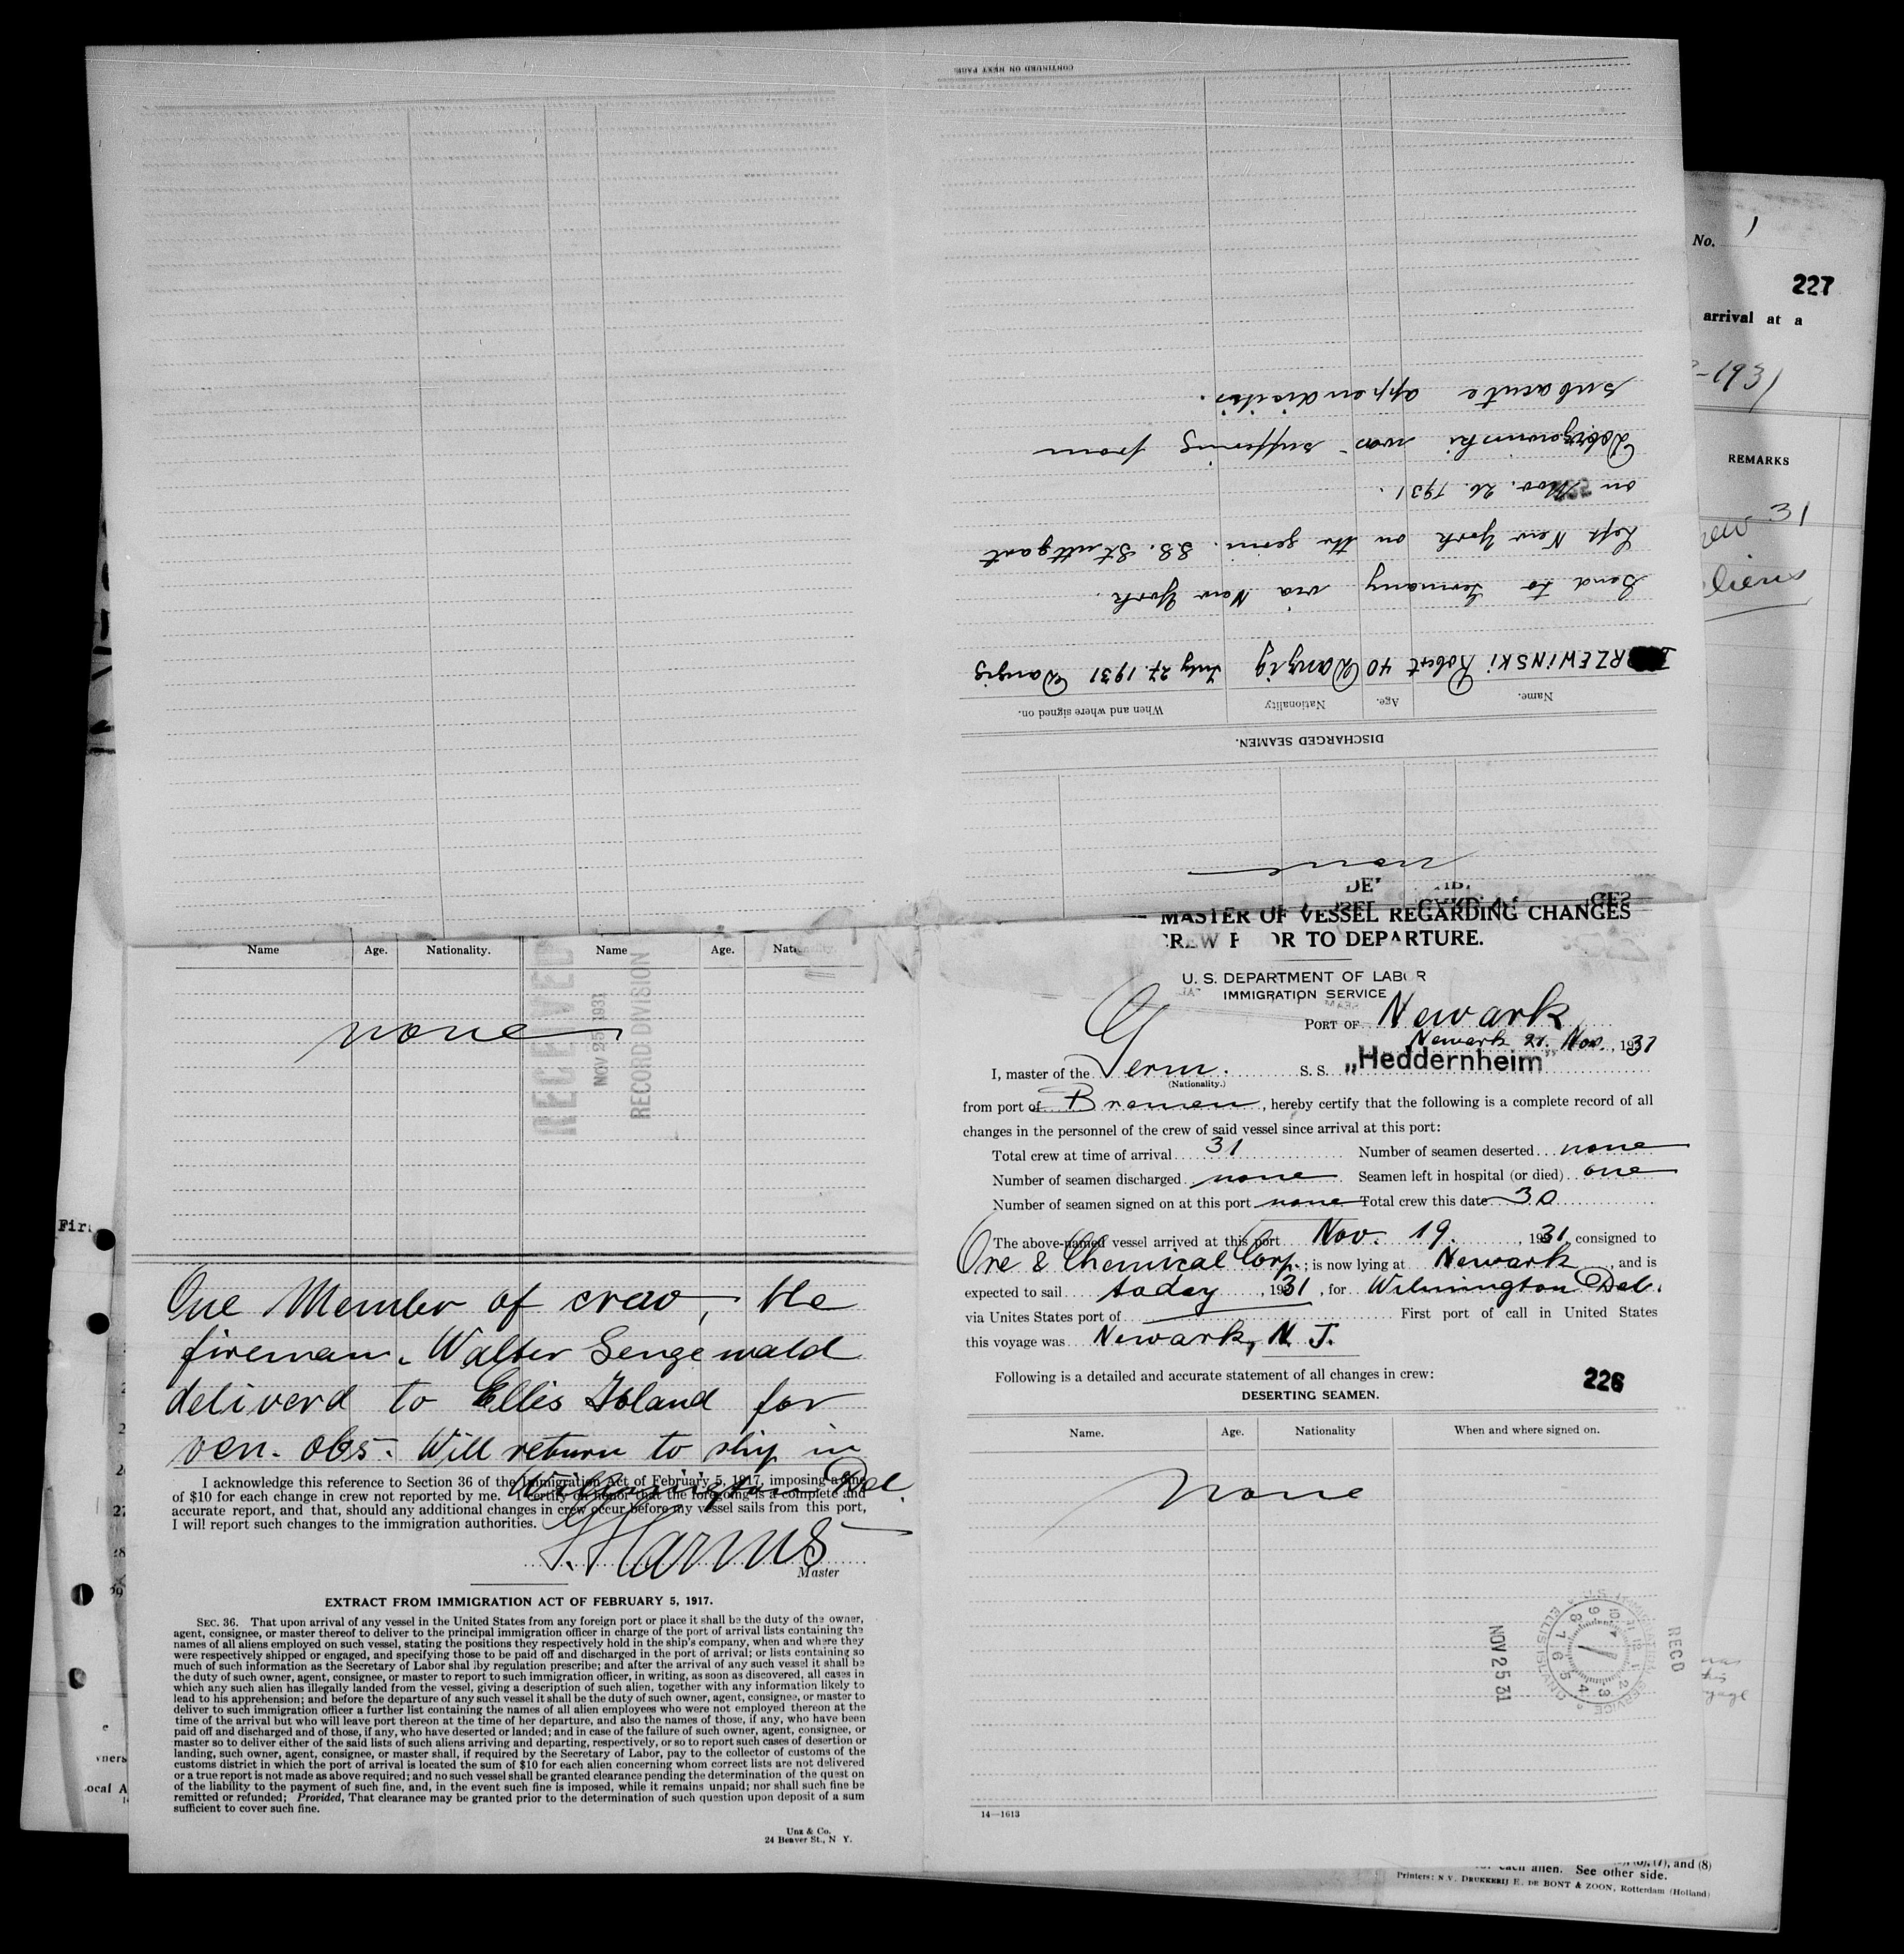 CONTINUED ON NEXT PAGE.
No. 1
227
arrival at a
-1931
REMARKS
31
subacute appendicitis.
was suffering from
on Nov. 26. 1931.
Left New York on the germ. S.S. Stuttgart
Send to Germany via New York.
RZEWINSKI Robert 40 Danzig July 27. 1931 Danzig
Name. Age. Nationality When and where signed on.
DISCHARGED SEAMEN.
none
MASTER OF VESSEL REGARDING CHANGES
OR TO DEPARTURE.
U. S. DEPARTMENT OF LABOR
IMMIGRATION SERVICE
PORT OF Newark
Newark 21. Nov., 1931
I, master of the Germ. S. S. „Heddernheim"
(Nationality.)
from port of Bremen, hereby certify that the following is a complete record of all
changes in the personnel of the crew of said vessel since arrival at this port:
Total crew at time of arrival 31 Number of seamen deserted none
Number of seamen discharged none Seamen left in hospital (or died) one
Number of seamen signed on at this port none Total crew this date 30
The above-named vessel arrived at this port Nov. 19., 1931, consigned to
Ore & Chemical Corp.; is now lying at Newark, and is
expected to sail today, 1931, for Wilmington Del.
via Unites States port of First port of call in United States
this voyage was Newark, N. J.
Following is a detailed and accurate statement of all changes in crew:
226
DESERTING SEAMEN.
Name. Age. Nationality When and where signed on.
none
RECD
NOV 25 31
ELLIS ISLAND
14—1613
Name Age. Nationality. Name Age. Nationality.
none
RECEIVED
NOV 25 1931
RECORD DIVISION
One Member of crew, the
fireman, Walter Sengewald
deliverd to Ellis Island for
ven. obs. Will return to ship in
Wilmington Del.
I acknowledge this reference to Section 36 of the Immigration Act of February 5, 1917, imposing a fine
of $10 for each change in crew not reported by me. I certify on honor that the foregoing is a complete and
accurate report, and that, should any additional changes in crew occur before my vessel sails from this port,
I will report such changes to the immigration authorities.
Harms
Master
EXTRACT FROM IMMIGRATION ACT OF FEBRUARY 5, 1917.
SEC. 36. That upon arrival of any vessel in the United States from any foreign port or place it shall be the duty of the owner,
agent, consignee, or master thereof to deliver to the principal immigration officer in charge of the port of arrival lists containing the
names of all aliens employed on such vessel, stating the positions they respectively hold in the ship's company, when and where they
were respectively shipped or engaged, and specifying those to be paid off and discharged in the port of arrival; or lists containing so
much of such information as the Secretary of Labor shal lby regulation prescribe; and after the arrival of any such vessel it shall be
the duty of such owner, agent, consignee, or master to report to such immigration officer, in writing, as soon as discovered, all cases in
which any such alien has illegally landed from the vessel, giving a description of such alien, together with any information likely to
lead to his apprehension; and before the departure of any such vessel it shall be the duty of such owner, agent, consignee, or master to
deliver to such immigration officer a further list containing the names of all alien employees who were not employed thereon at the
time of the arrival but who will leave port thereon at the time of her departure, and also the names of those, if any, who have been
paid off and discharged and of those, if any, who have deserted or landed; and in case of the failure of such owner, agent, consignee, or
master so to deliver either of the said lists of such aliens arriving and departing, respectively, or so to report such cases of desertion or
landing, such owner, agent, consignee, or master shall, if required by the Secretary of Labor, pay to the collector of customs of the
customs district in which the port of arrival is located the sum of $10 for each alien concerning whom correct lists are not delivered
or a true report is not made as above required; and no such vessel shall be granted clearance pending the determination of the quest on
of the liability to the payment of such fine, and, in the event such fine is imposed, while it remains unpaid; nor shall such fine be
remitted or refunded; Provided, That clearance may be granted prior to the determination of such question upon deposit of a sum
sufficient to cover such fine.
Unz & Co.
24 Beaver St., N Y.
and (8)
for each alien. See other side.
Printers: N.V. DRUKKERIJ F. DE BONT & ZOON, Rotterdam (Holland)